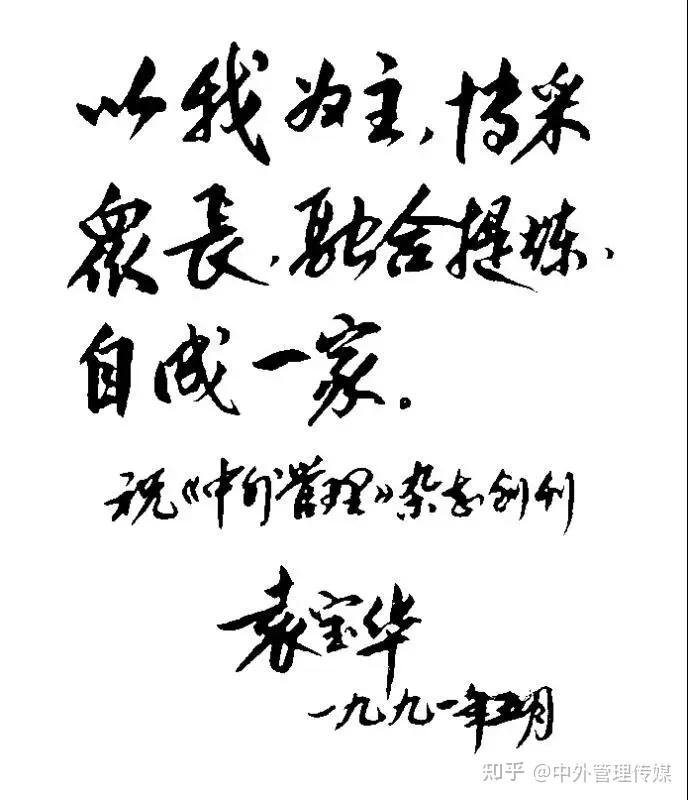 以我为主,博采
眾長,融合提炼,
自成一家。
祝《中外管理》杂志创刊
袁宝华
一九九一年五月
知乎 @中外管理传媒